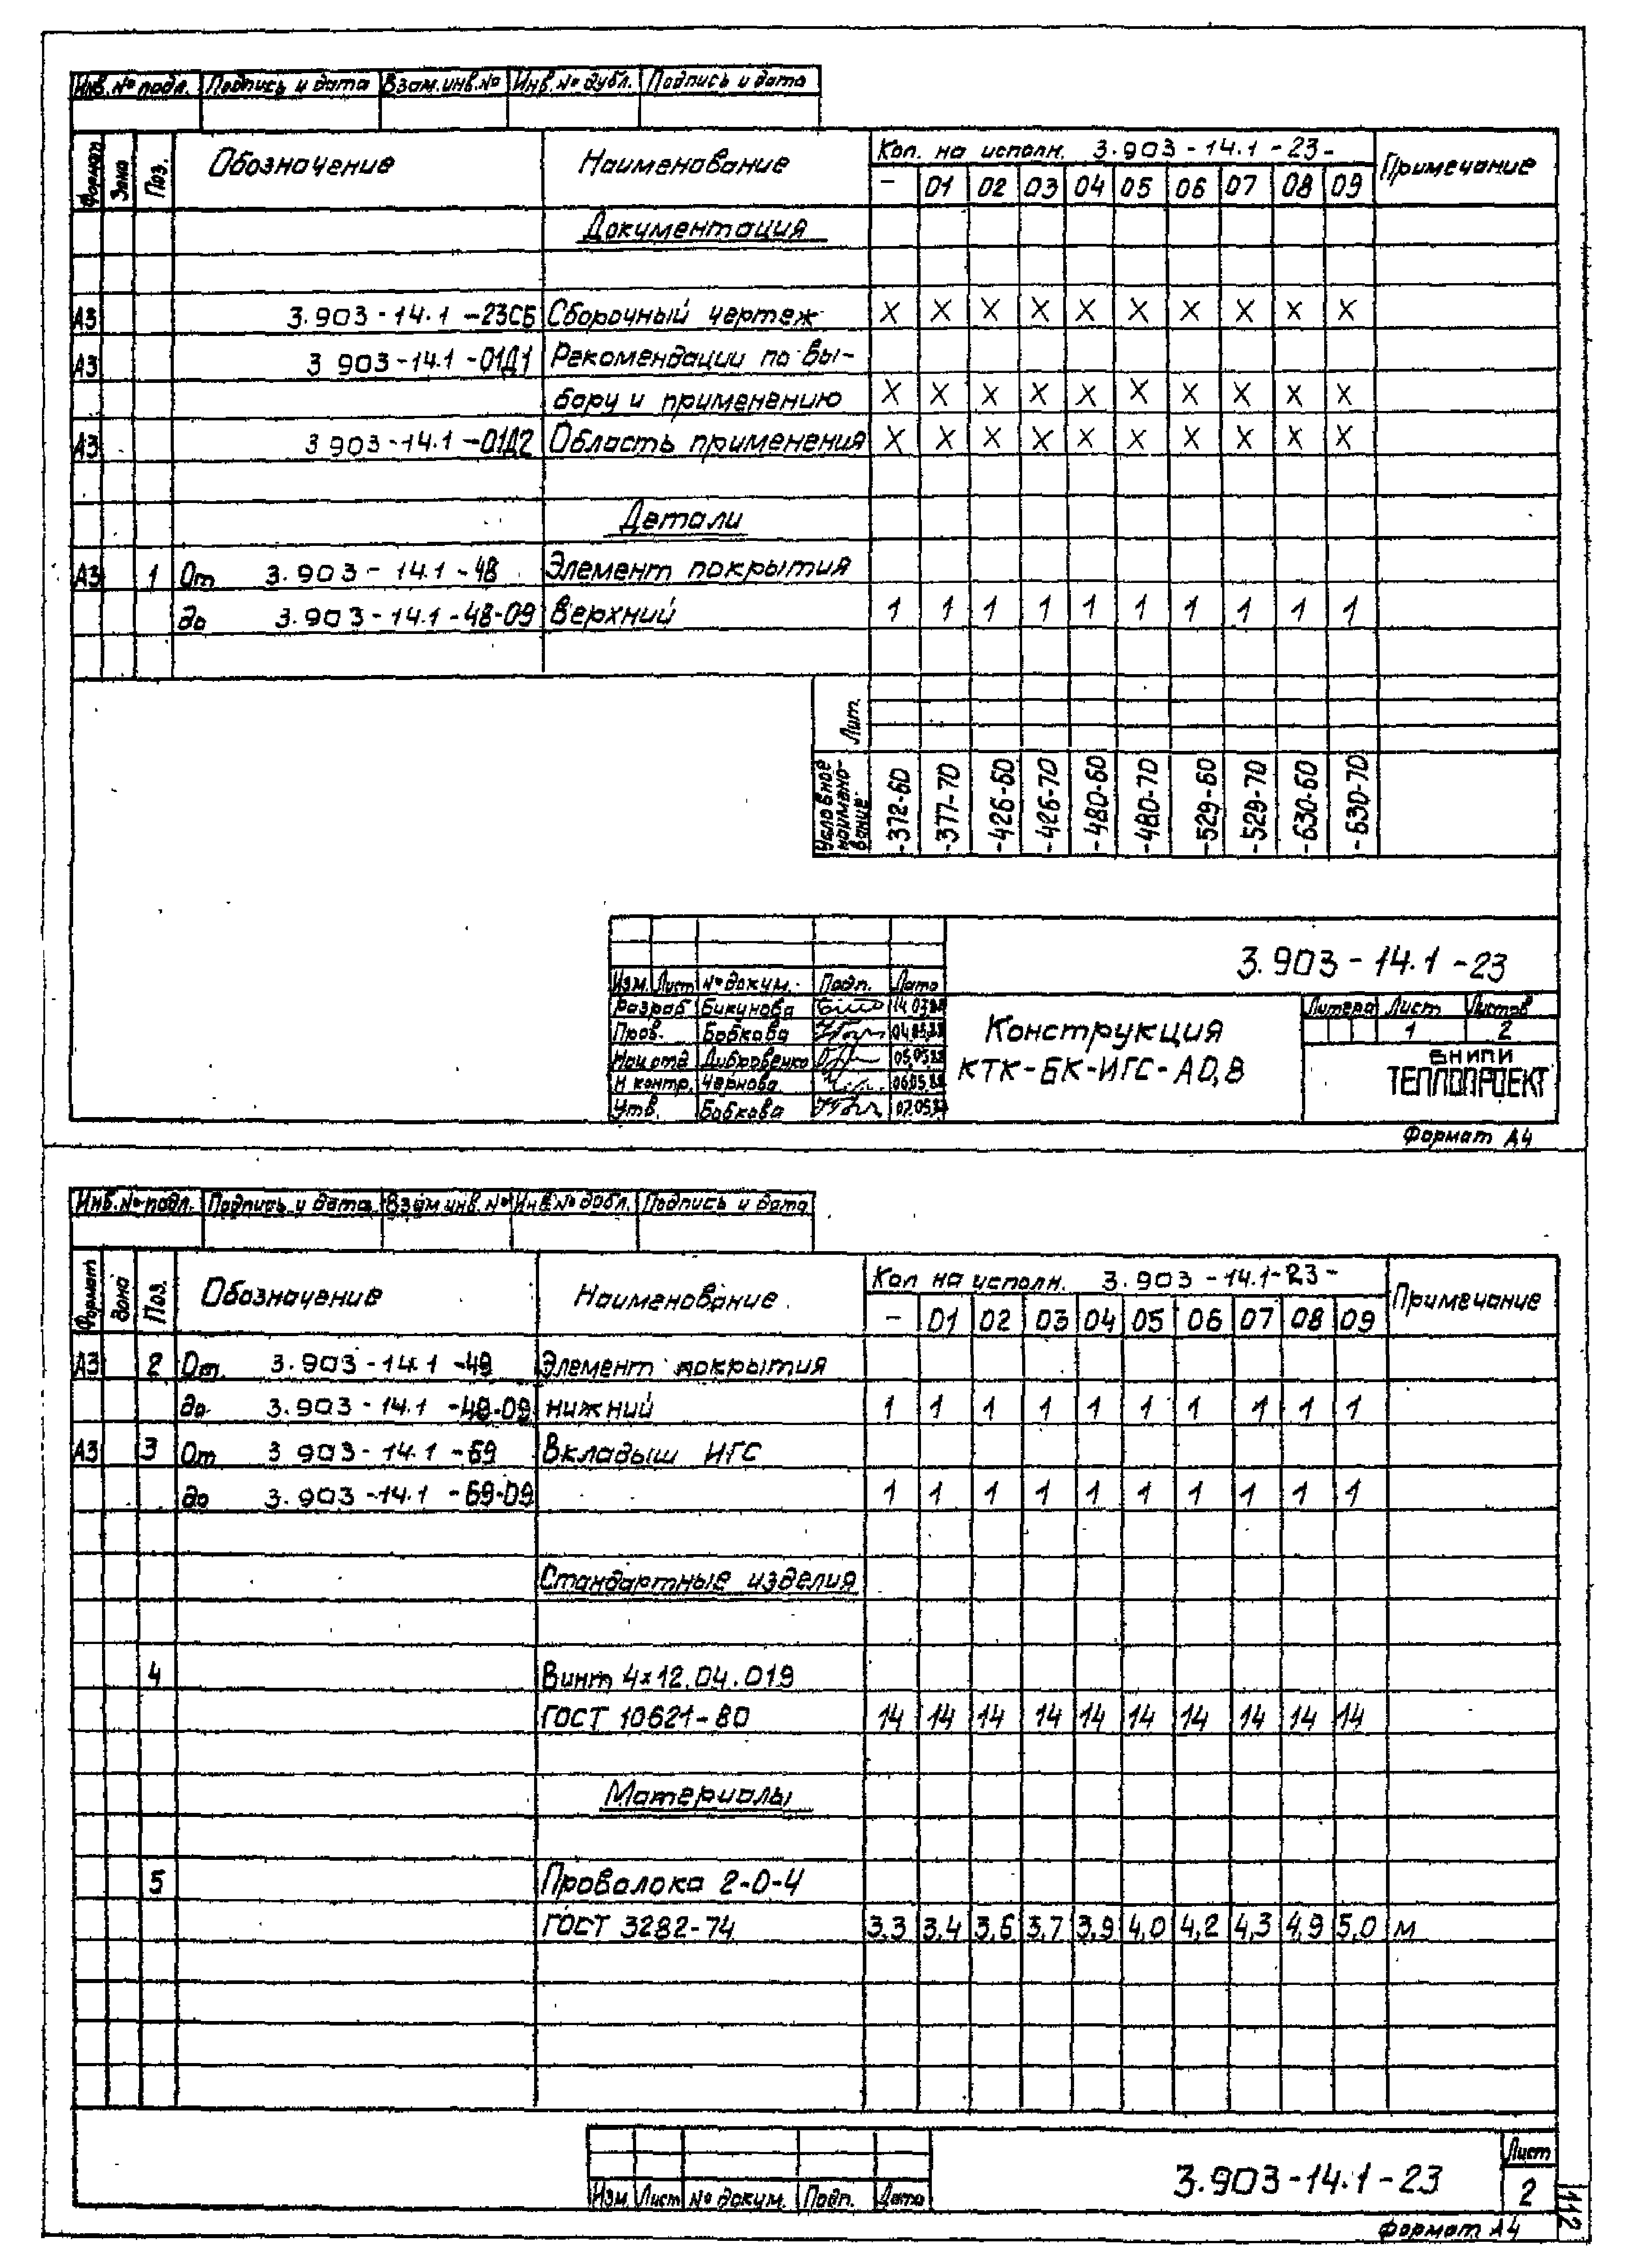 Инв. № подл. Подпись и дата Взам. инв. № Инв. № дубл. Подпись и дата
Формат Зона Поз. Обозначение Наименование Кол. на исполн. 3.903-14.1-23- Примечание
- 01 02 03 04 05 06 07 08 09
Документация
А3 3.903-14.1-23СБ Сборочный чертеж X X X X X X X X X X
А3 3 903-14.1-01Д1 Рекомендации по вы-
бору и применению X X X X X X X X X X
А3 3 903-14.1-01Д2 Область применения X X X X X X X X X X
Детали
А3 1 От 3.903-14.1-48 Элемент покрытия
до 3.903-14.1-48-09 верхний 1 1 1 1 1 1 1 1 1 1
Лит.
Условное наимено-вание -372-60 -377-70 -426-60 -426-70 -480-60 -480-70 -529-60 -529-70 -630-60 -630-70
3.903-14.1-23
Изм. Лист № докум. Подп. Дата
Разраб Бикунова
Пров. Бобкова
Нач отд Дибровенко
Н контр. Чернова
Утв. Бобкова
Конструкция
КТК-БК-ИГС-АО,8
Литера Лист Листов
1 2
ВНИПИ
ТЕПЛОПРОЕКТ
Формат А4
Инв. № подл. Подпись и дата Взам инв. № Инв № дубл. Подпись и дата
Формат Зона Поз. Обозначение Наименование Кол на исполн. 3.903-14.1-23- Примечание
- 01 02 03 04 05 06 07 08 09
А3 2 От 3.903-14.1-49 Элемент покрытия
до 3.903-14.1-49-09 нижний 1 1 1 1 1 1 1 1 1 1
А3 3 От 3 903-14.1-69 Вкладыш ИГС
до 3.903-14.1-69-09 1 1 1 1 1 1 1 1 1 1
Стандартные изделия
4 Винт 4х12.04.019
ГОСТ 10621-80 14 14 14 14 14 14 14 14 14 14
Материалы
5 Проволока 2-0-4
ГОСТ 3282-74 3,3 3,4 3,6 3,7 3,9 4,0 4,2 4,3 4,9 5,0 м
3.903-14.1-23
Изм. Лист № докум. Подп. Дата
Лист
2
Формат А4
112